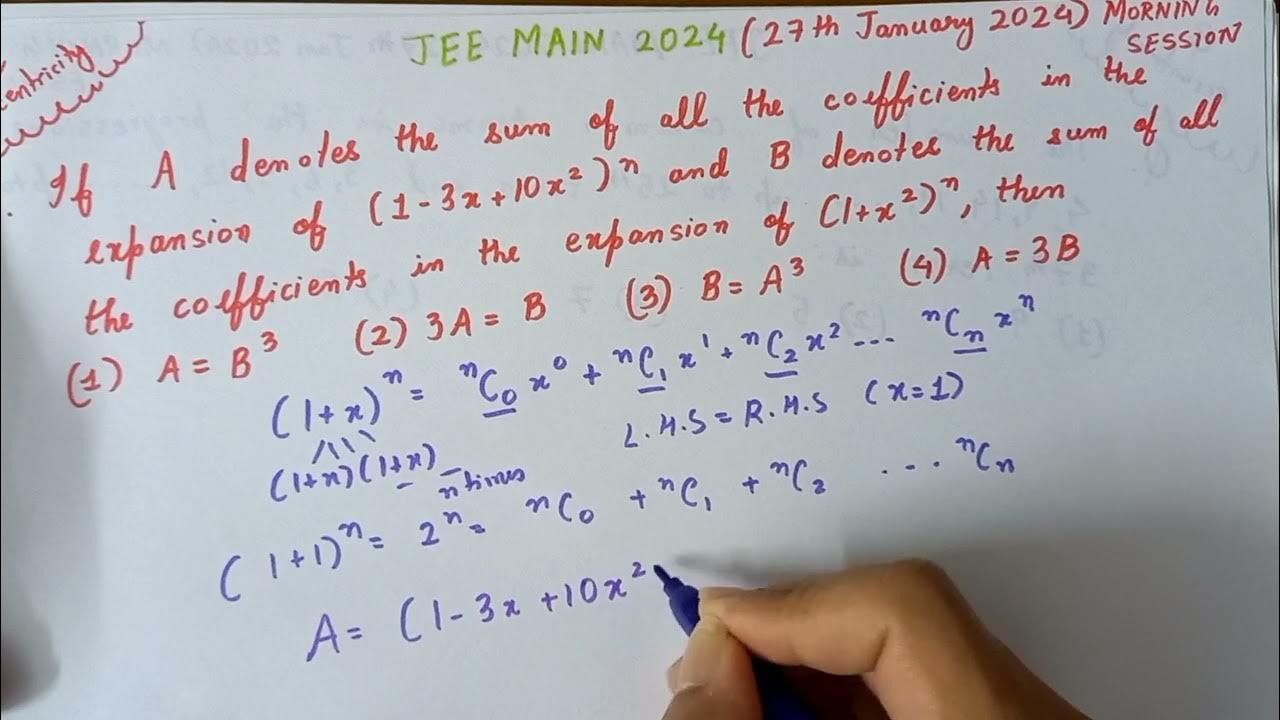 JEE MAIN 2024 (27th January 2024) MORNING SESSION
If A denotes the sum of all the coefficients in the
expansion of (1-3x+10x²)ⁿ and B denotes the sum of all
the coefficients in the expansion of (1+x²)ⁿ, then
(1) A = B³ (2) 3A = B (3) B = A³ (4) A = 3B
(1+x)ⁿ = ⁿC₀ x⁰ + ⁿC₁ x¹ + ⁿC₂ x² --- ⁿCₙ xⁿ
(1+x)(1+x) - n times
L.H.S = R.H.S (x=1)
(1+1)ⁿ = 2ⁿ = ⁿC₀ + ⁿC₁ + ⁿC₂ ... ⁿCₙ
A = (1-3x+10x²